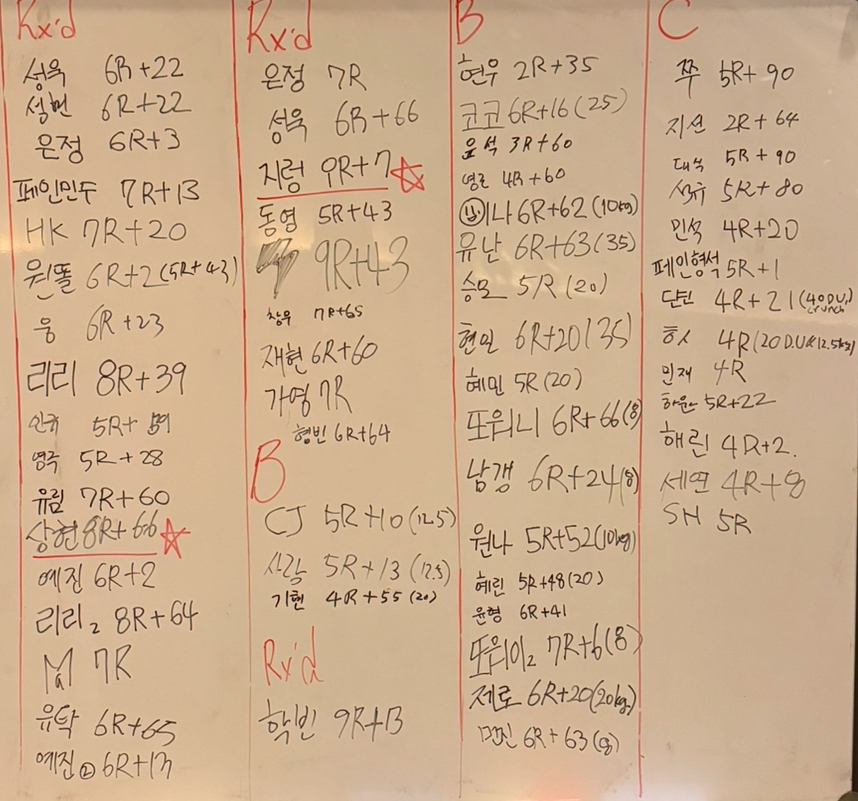 Rx'd
성욱 6R+22
성민 6R+22
은정 6R+3
페인민주 7R+13
HK 7R+20
원똘 6R+2(5R+43)
웅 6R+23
리리 8R+39
5R+
영국 5R+28
유림 7R+60
상현 8R+66
예진 6R+2
리리2 8R+64
7R
유탁 6R+65
예진② 6R+13
Rx'd
은정 7R
성욱 6R+66
지렁 9R+7
동영 5R+43
9R+43
창우 7R+65
재현 6R+60
가영 7R
형빈 6R+64
B
CJ 5R+10(12.5)
5R+13(12.5)
기현 4R+55(20)
Rx'd
학빈 9R+13
B
현우 2R+35
코코 6R+16(25)
윤석 3R+60
영근 4R+60
이나 6R+62(10kg)
유난 6R+63(35)
승모 5R(20)
현일 6R+20(35)
혜민 5R(20)
또위니 6R+66(8)
남갱 6R+24(8)
원나 5R+52(10kg)
혜린 5R+48(20)
윤형 6R+41
또위이2 7R+6(8)
제로 6R+20(20kg)
6R+63(8)
C
쭈 5R+90
지선 2R+64
대석 5R+90
5R+80
민석 4R+20
페인형석 5R+1
4R+21(40D.U, crunch)
4R(20D.U&12.5kg)
민재 4R
하윤 5R+22
해린 4R+2.
세연 4R+8
SH 5R